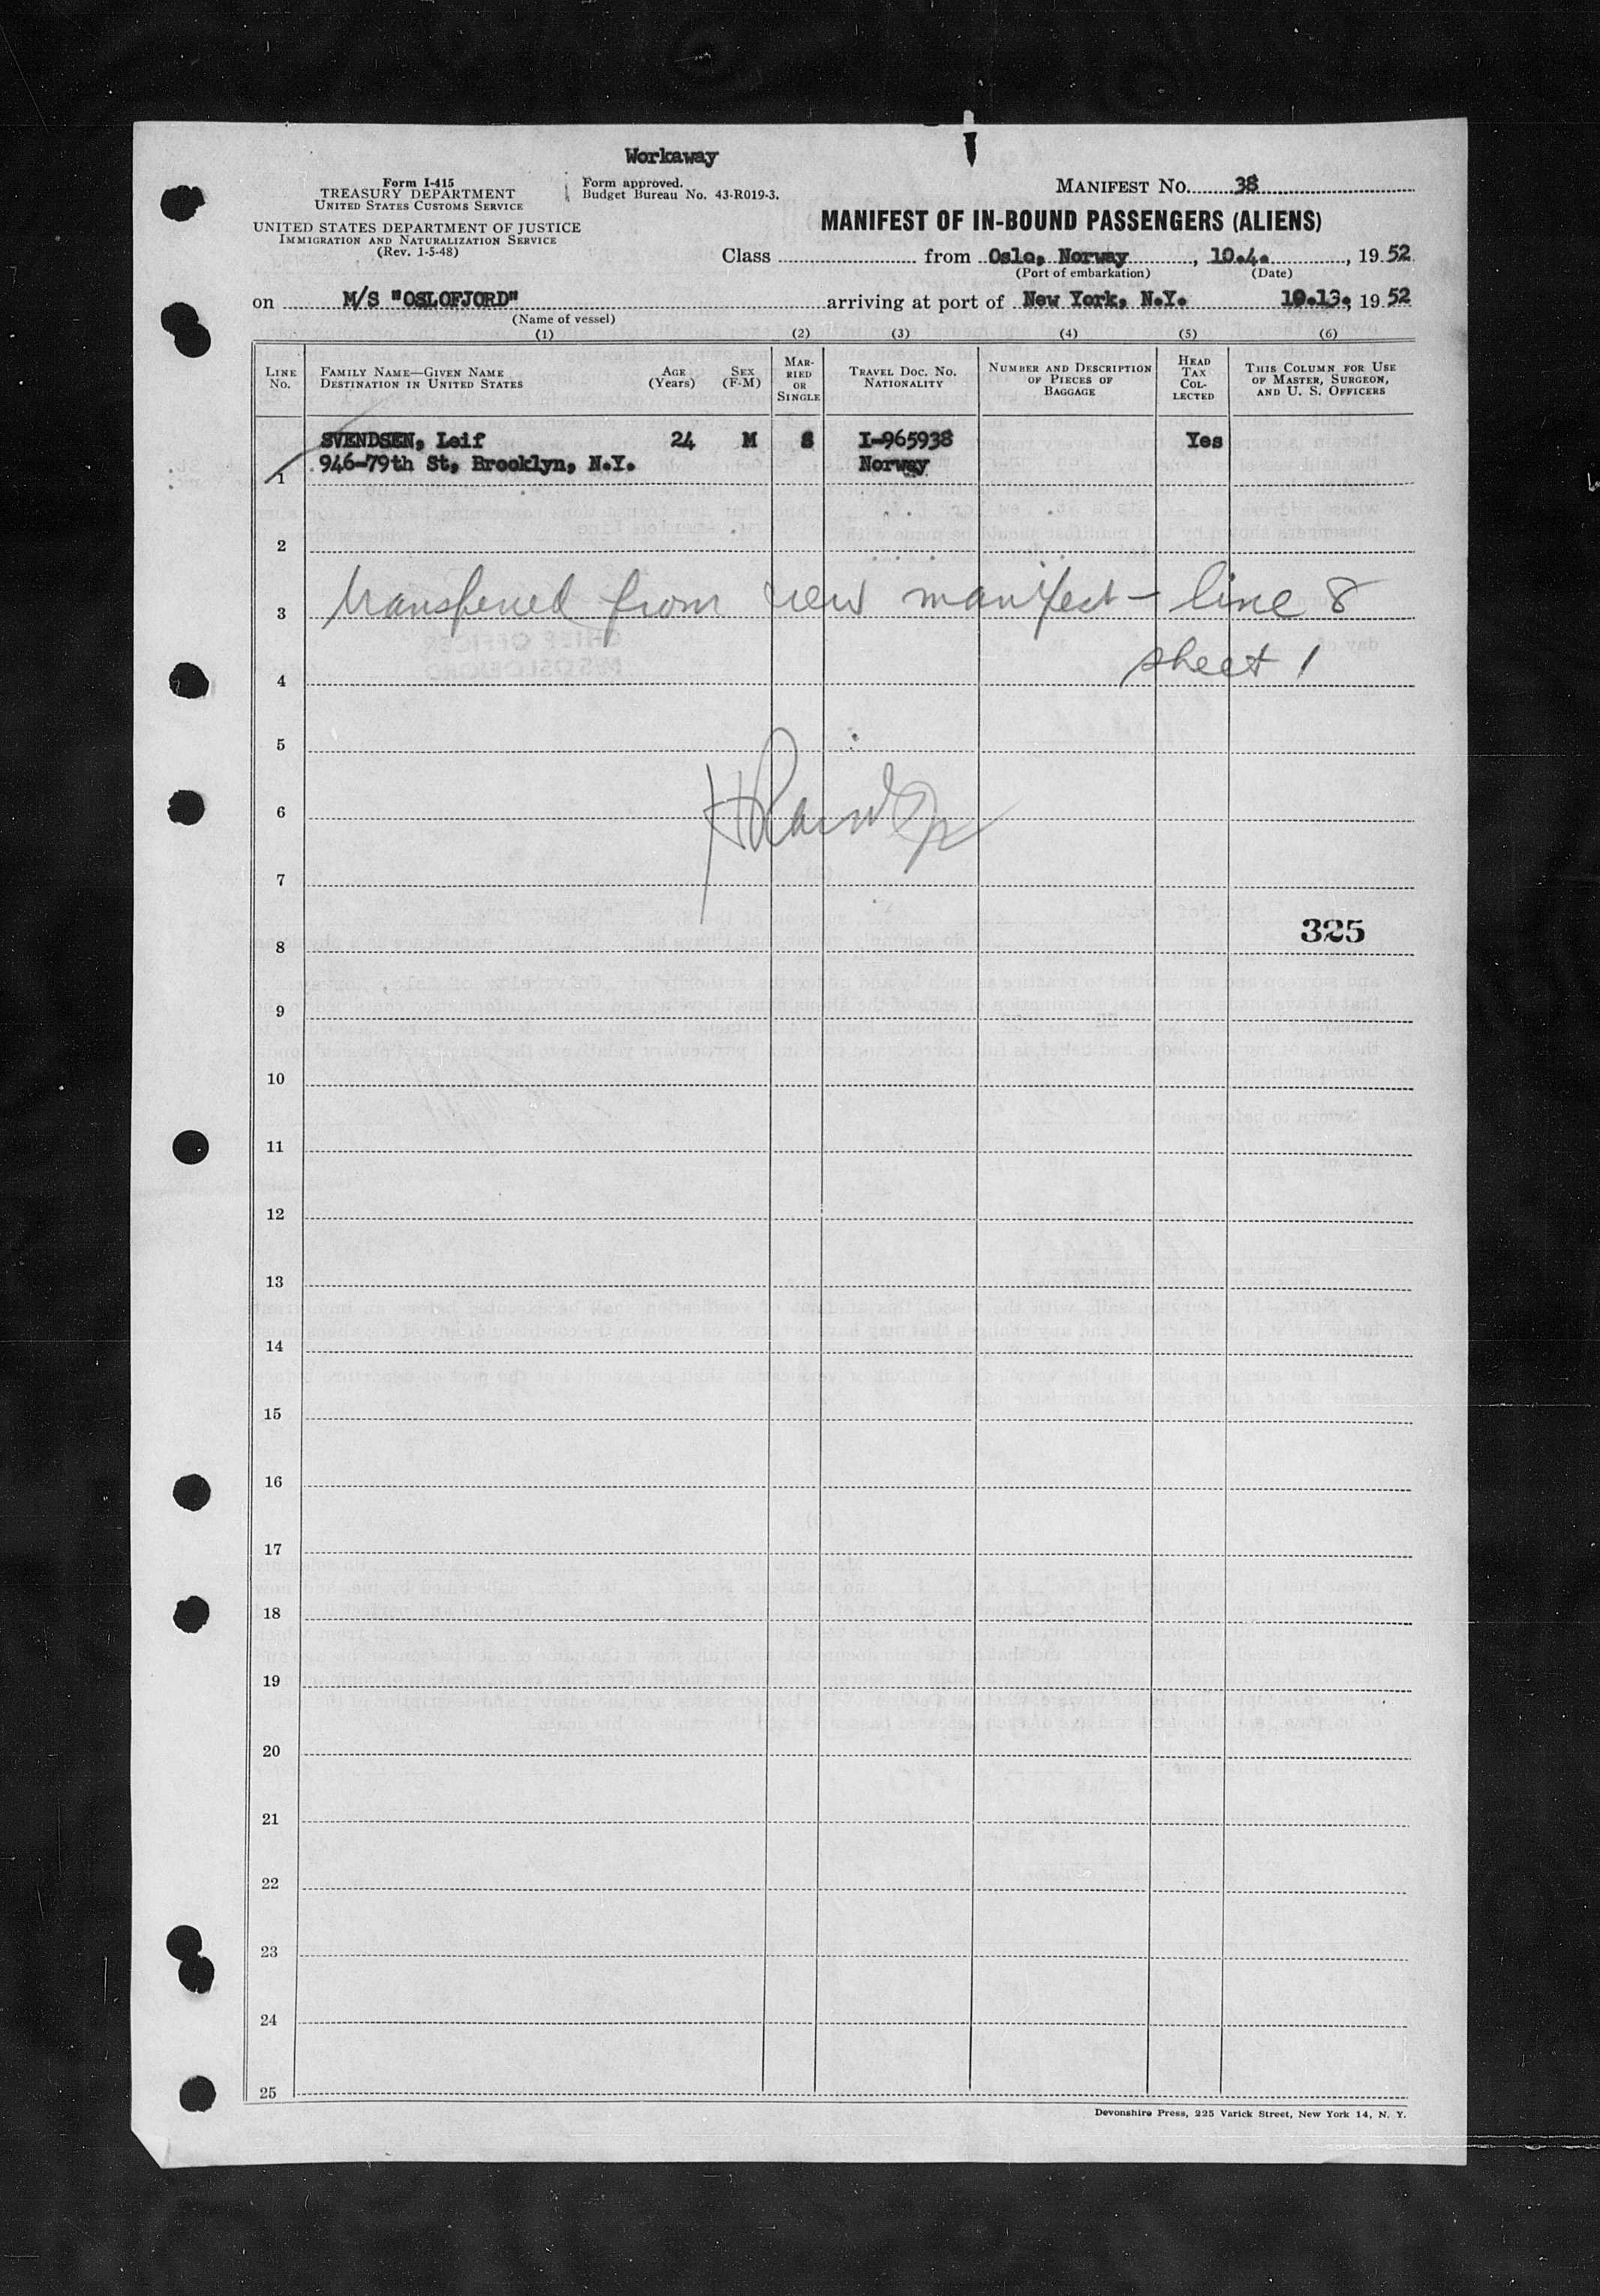 Workaway
Form I-415
TREASURY DEPARTMENT
UNITED STATES CUSTOMS SERVICE
UNITED STATES DEPARTMENT OF JUSTICE
IMMIGRATION AND NATURALIZATION SERVICE
(Rev. 1-5-48)
Form approved.
Budget Bureau No. 43-R019-3.
MANIFEST NO. 38
MANIFEST OF IN-BOUND PASSENGERS (ALIENS)
Class from Oslo, Norway, 10.4., 1952
(Port of embarkation) (Date)
on M/S "OSLOFJORD" arriving at port of New York, N.Y. 10.13, 1952
(Name of vessel)
(1) (2) (3) (4) (5) (6)
LINE NO.
FAMILY NAME—GIVEN NAME
DESTINATION IN UNITED STATES
AGE (Years)
SEX (F-M)
MARRIED OR SINGLE
TRAVEL DOC. NO.
NATIONALITY
NUMBER AND DESCRIPTION OF PIECES OF BAGGAGE
HEAD TAX COLLECTED
THIS COLUMN FOR USE OF MASTER, SURGEON, AND U. S. OFFICERS
SVENDSEN, Leif 24 M S I-965938 Yes
946-79th St, Brooklyn, N.Y. Norway
1
2
transferred from crew manifest - line 8
3
sheet 1
4
5
6
7
325
8
9
10
11
12
13
14
15
16
17
18
19
20
21
22
23
24
25
Devonshire Press, 225 Varick Street, New York 14, N. Y.